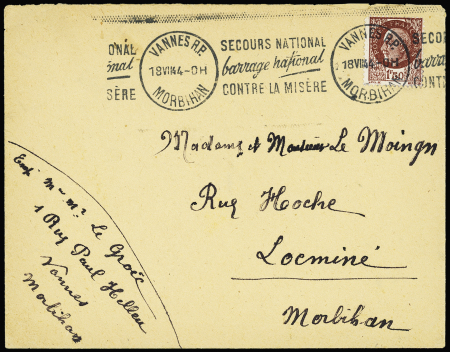 ONAL
nal
SÈRE
VANNES R.P.
18 VII 44-0H
MORBIHAN
SECOURS NATIONAL
barrage national
CONTRE LA MISÈRE
VANNES R.P.
18 VII 44-0H
MORBIHAN
SECOU
barra
CONTR
1F50
Madame et Monsieur Le Moingn
Rue Hoche
Locminé
Morbihan
Le Groïc
1 Rue Paul Helleu
Vannes
Morbihan